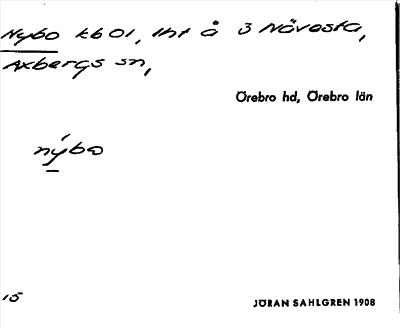 Nybo kb 01, lht å 3 Nävesta,
Axbergs sn,
Örebro hd, Örebro län
nýbo
15
JÖRAN SAHLGREN 1908